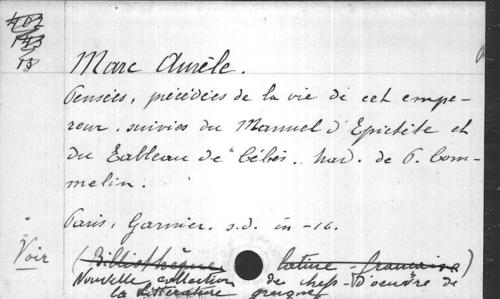 402
143
13
Marc Aurèle.
Pensées, précédées de la vie de cet empe-
reur. suivies du Manuel d'Epictète et
du Tableau de Cébès. trad. de P. Com-
melin.
Paris, Garnier. s.d. in-16.
Voir (Bibliothèque latine-française)
Nouvelle collection de chefs-d'oeuvre de
la Littérature grecque